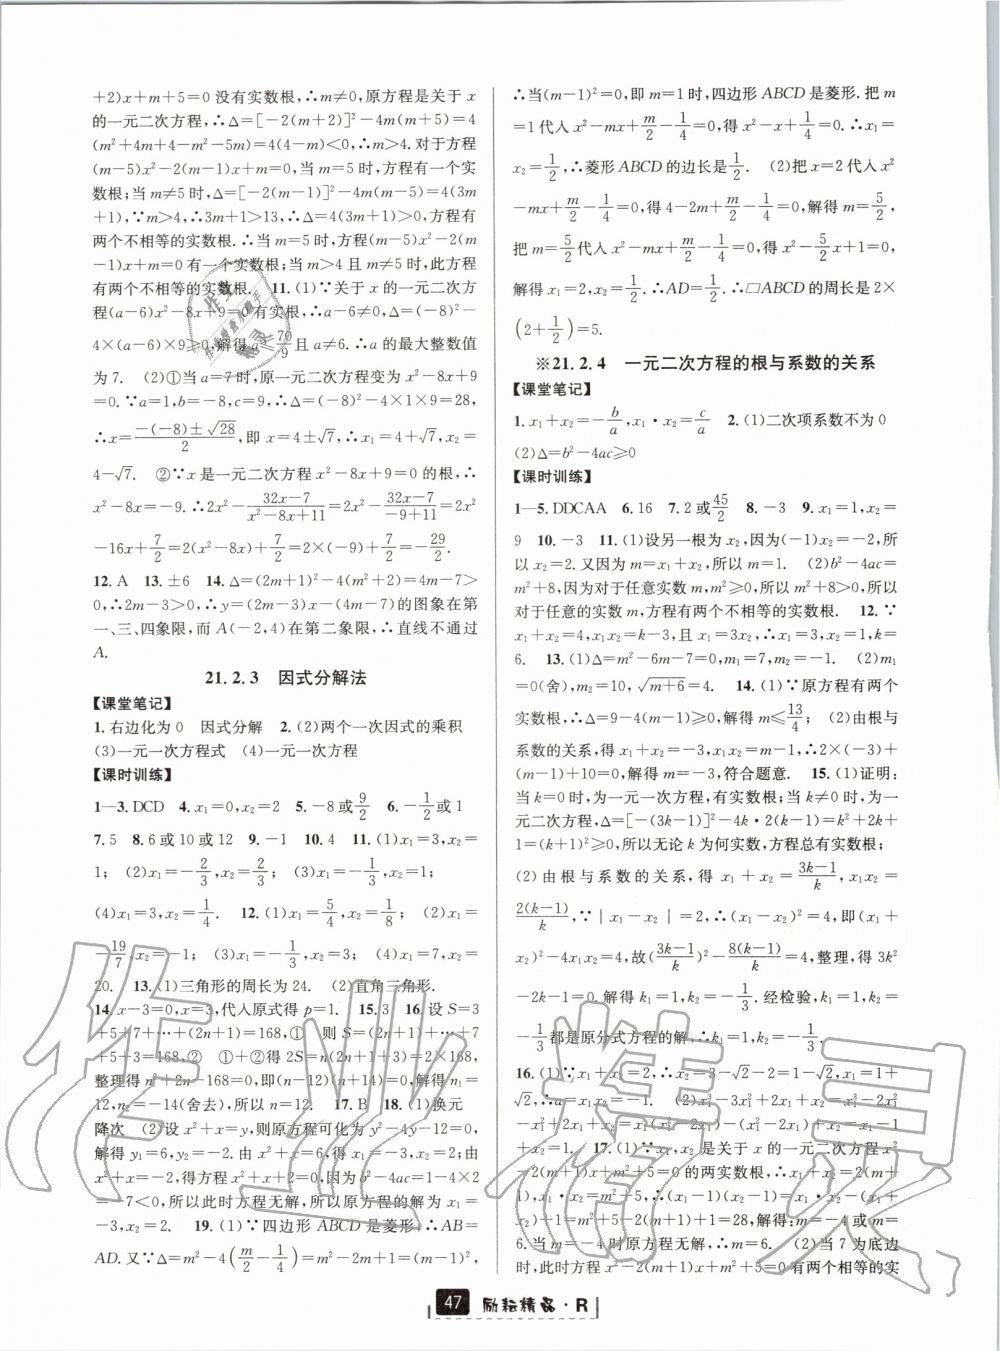 +2)x+m+5=0 没有实数根,∴m≠0,原方程是关于 x
的一元二次方程,∴Δ=[-2(m+2)]²-4m(m+5)=4
(m²+4m+4-m²-5m)=4(4-m)<0,∴m>4. 对于方程
(m-5)x²-2(m-1)x+m=0,当 m=5 时,方程有一个实
数根;当 m≠5 时,Δ=[-2(m-1)]²-4m(m-5)=4(3m
+1),∵m>4,∴3m+1>13,∴Δ=4(3m+1)>0,方程有
两个不相等的实数根.∴当 m=5 时,方程(m-5)x²-2(m
-1)x+m=0 有一个实数根;当 m>4 且 m≠5 时,此方程
有两个不相等的实数根. 11. (1)∵关于 x 的一元二次方
程(a-6)x²-8x+9=0 有实数根,∴a-6≠0,Δ=(-8)²-
4×(a-6)×9≥0,解得 a≤70/9且 a≠6.∴a 的最大整数值
为 7. (2)①当 a=7 时,原一元二次方程变为 x²-8x+9=
0.∵a=1,b=-8,c=9,∴Δ=(-8)²-4×1×9=28,
∴x=(-(-8)±√28)/2,即 x=4±√7,∴x₁=4+√7,x₂=
4-√7. ②∵x 是一元二次方程 x²-8x+9=0 的根,∴
x²-8x=-9.∴2x²-(32x-7)/(x²-8x+11)=2x²-(32x-7)/(-9+11)=2x²
-16x+7/2=2(x²-8x)+7/2=2×(-9)+7/2=-29/2.
12. A 13. ±6 14. Δ=(2m+1)²-4m²=4m-7>
0,∴2m-3>0,∴y=(2m-3)x-(4m-7)的图象在第
一、三、四象限,而 A(-2,4)在第二象限,∴直线不通过
A.
21. 2. 3 因式分解法
【课堂笔记】
1. 右边化为 0 因式分解 2. (2)两个一次因式的乘积
(3)一元一次方程式 (4)一元一次方程
【课时训练】
1—3. DCD 4. x₁=0,x₂=2 5. -8 或9/2 6. -1/2或 1
7. 5 8. 6 或 10 或 12 9. -1 10. 4 11. (1)x₁=3,x₂=
1; (2)x₁=-2/3,x₂=2/3; (3)x₁=-1/3,x₂=1;
(4)x₁=3,x₂=1/4. 12. (1)x₁=5/4,x₂=1/8; (2)x₁=
-19/7,x₂=-1; (3)x₁=-1/3,x₂=3; (4)x₁=7,x₂=
20. 13. (1)三角形的周长为 24. (2)直角三角形.
14. x-3=0,x=3,代入原式得 p=1. 15. 3 16. 设 S=3
+5+7+…+(2n+1)=168,① 则 S=(2n+1)+…+7
+5+3=168,② ①+②得 2S=n(2n+1+3)=2×168,
整理得 n²+2n-168=0,解得 n₁=
12,n₂=-14(舍去),所以 n=12. 17. B 18. (1)换元
降次 (2)设 x²+x=y,则原方程可化为 y²-4y-12=0,
解得 y₁=6,y₂=-2. 由 x²+x=6,得 x₁=-3,x₂=2;由
x²+x=-2,得方程 x²+x+2=0,因为 b²-4ac=1-4×2
=-7<0,所以此时方程无解,所以原方程的解为 x₁=
-3,x₂=2. 19. (1)∵四边形 ABCD 是菱形,∴AB=
AD. 又∵Δ=m²-4(m/2-1/4)=m²-2m+1=(m-1)²,
∴当(m-1)²=0,即 m=1 时,四边形 ABCD 是菱形. 把 m
=1 代入 x²-mx+m/2-1/4=0,得 x²-x+1/4=0.∴x₁=
x₂=1/2,∴菱形 ABCD 的边长是1/2. (2)把 x=2 代入 x²
-mx+m/2-1/4=0,得 4-2m+m/2-1/4=0,解得 m=5/2,
把 m=5/2代入 x²-mx+m/2-1/4=0,得 x²-5/2x+1=0.
解得 x₁=2,x₂=1/2.∴AD=1/2.∴▱ABCD 的周长是 2×
(2+1/2)=5.
※21. 2. 4 一元二次方程的根与系数的关系
【课堂笔记】
1. x₁+x₂=-b/a,x₁·x₂=c/a 2. (1)二次项系数不为 0
(2)Δ=b²-4ac≥0
【课时训练】
1—5. DDCAA 6. 16 7. 2 或45/2 8. -3 9. x₁=1,x₂=
9 10. -3 11. (1)设另一根为 x₂,因为(-1)x₂=-2,所
以 x₂=2. 又因为 m=x₁+x₂,所以 m=1. (2)因为 Δ=
m²+8,因为对于任意实数 m,m²≥0,所以 m²+8>0,所以
对于任意的实数 m,方程有两个不相等的实数根. 12. ∵
x₁+x₂=4,x₁x₂=k-3,且 x₁=3x₂,∴x₁=3,x₂=1,k=
6. 13. (1)Δ=m²-6m-7=0,m₁=7,m₂=-1. (2)m=
m=0(舍),m=-2,√(m+6)=4. 14. (1)∵原方程有两个
实数根,∴Δ=9-4(m-1)≥0,解得 m≤13/4; (2)由根与
系数的关系,得 x₁+x₂=-3,x₁x₂=m-1,∴2×(-3)+
(m-1)+10=0,解得 m=-3,符合题意. 15. (1)证明:
当 k=0 时,为一元一次方程,有实数根;当 k≠0 时,为一
元二次方程,Δ=[-(3k-1)]²-4k·2(k-1)=k²+2k+
1=(k+1)²≥0,所以无论 k 为何实数,方程总有实数根;
(2)由根与系数的关系,得 x₁+x₂=(3k-1)/k,x₁x₂=
2(k-1)/k,∵|x₁-x₂|=2,∴(x₁-x₂)²=4,即(x₁+
x₂)²-4x₁x₂=4,故((3k-1)/k)²-8(k-1)/k=4,整理,得 3k²
-2k-1=0. 解得 k₁=1,k₂=-1/3. 经检验,k₁=1,k₂=
-1/3都是原分式方程的解,∴k₁=1,k₂=-1/3.
16. (1)∵x₁+x₂=2,∴x₂=
√2,∴a=x₁x₂=-1.
+x₂=1. 17. (1)∵x₁,x₂是关于 x 的一元二次方程 x²
-2(m+1)x+m²+5=0 的两实数根,∴x₁+x₂=2(m+
1),x₁·x₂=m²+5,∴(x₁-1)(x₂-1)=x₁·x₂-(x₁+
x₂)+1=m²+5-2(m+1)+1=28,解得 m=-4 或 m=
6. 当 m=-4 时原方程无解,∴m=6. (2)当 7 为底边
时,此时方程 x²-2(m+1)x+m²+5=0 有两个相等的实
47
励耘精品·R
作业精灵